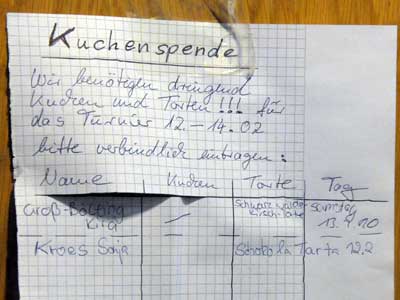 Kuchenspende
Wir benötigen dringend
Kuchen und Torten !!! für
das Turnier 12.-14.02
bitte verbindlich eintragen:
Name Kuchen Torte Tag
Groß-Bölting Kira Schwarzwälder Kirsch-Torte Samstag 13.2.10
Kroes Sonja Schoko la Tarta 12.2